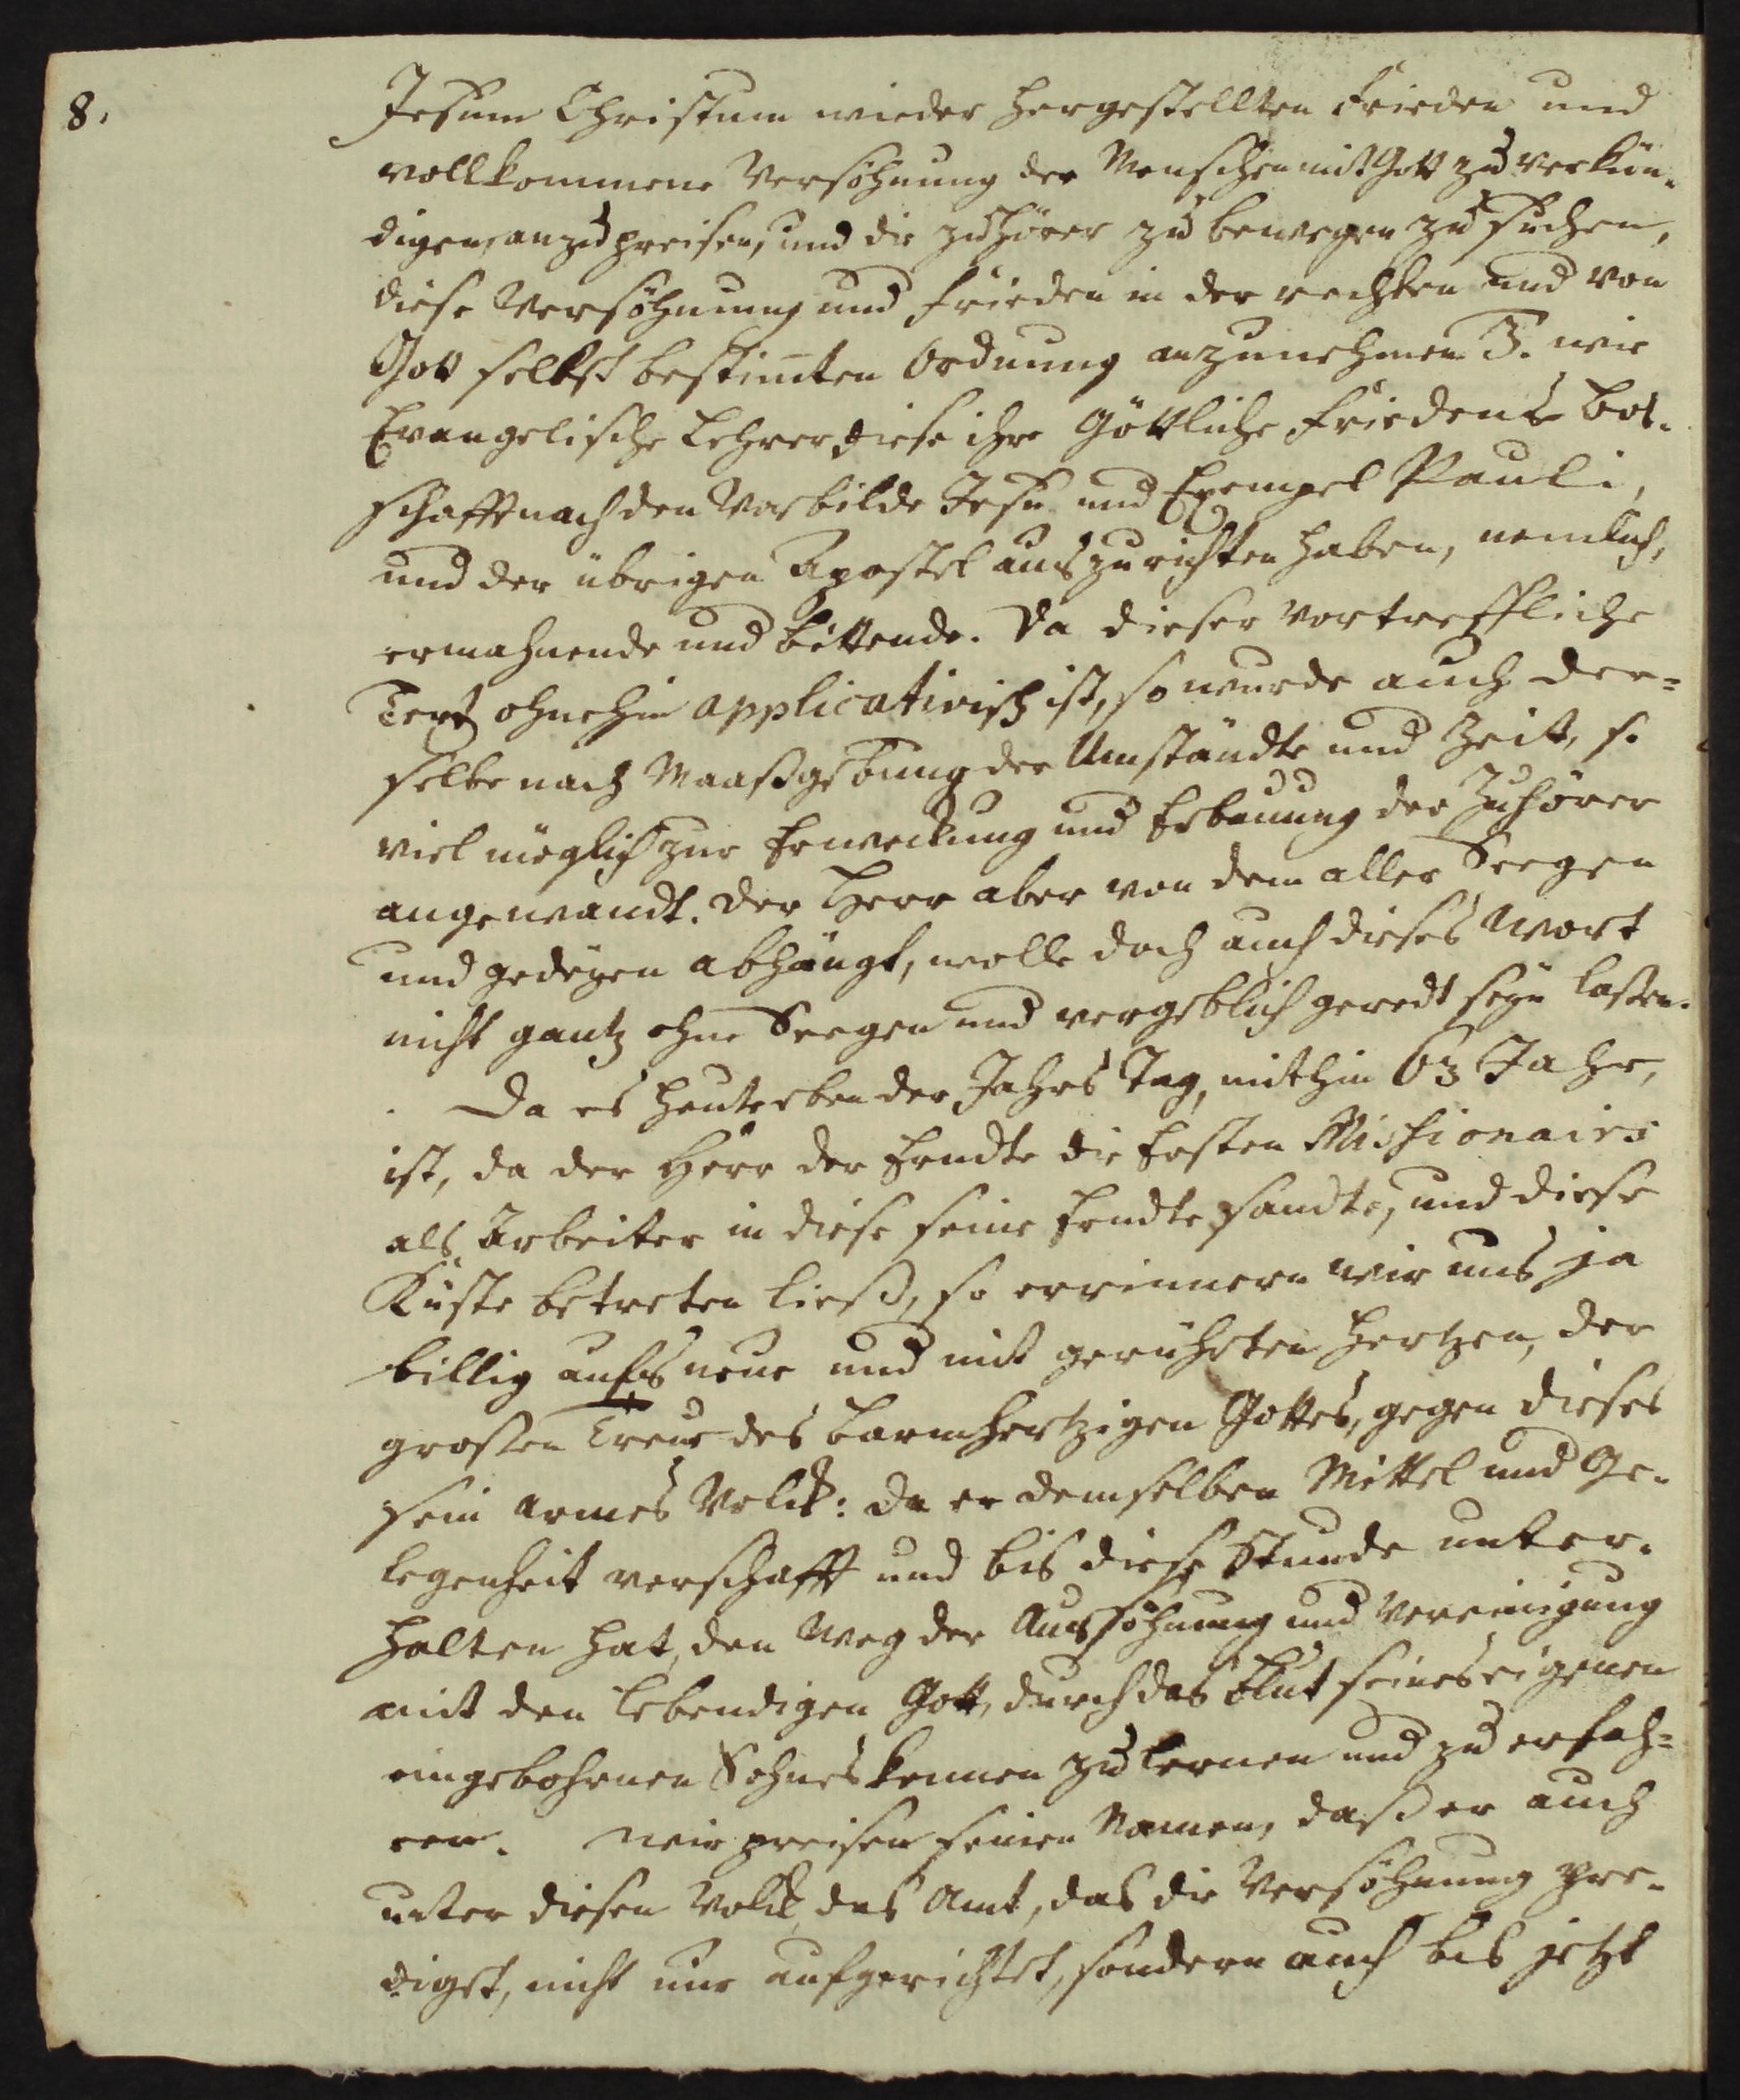 8.
Jesum Christum wieder hergestellten Frieden und
vollkommene Versöhnung der Menschen mit Gott zu verkün-
digen, anzupreisen, und die zuhörer zu bewegen zu suchen,
diese Versöhnung und Frieden in der rechten und von
Gott selbst bestim̅ten Ordnung anzunehmen 3. wie
Evangelische Lehrer diese ihre Göttliche Friedens Bot-
schafft nach den Vorbilde Jesu und Exempel Pauli,
und der übrigen Apostel auszurichten haben, nemlich,
ermahnende und bittende. Da dieser vortreffliche
Text ohnehin applicativisch ist, so wurde auch der-
selbe nach Maaßgebung der Umstände und Zeit, so
viel möglich zur Erweckung und Erbauung der Zuhörer
angewandt. Der Herr aber von dem aller Seegen
und gedeyen abhängt, wolle doch auch dieses Wort
nicht gantz ohne Seegen und vergeblich geredt seyn lassen.
Da es heute eben der Jahrs Tag, mithin 63 Jahr,
ist, da der Herr der Erndte die Ersten Missionairs
als Arbeiter in diese seine Erndte sandte, und diese
Küste betreten ließ, so errinnern wir uns ja
billig aufs neue und mit gerührten Hertzen, der
grossen Treue des barmhertzigen Gottes, gegen dieses
sein armes Volck: da er demselben Mittel und Ge-
legenheit verschafft und bis diese Stunde unter-
halten hat, den Weg der Aussöhnung und Vereinigung
mit den lebendigen Gott, durch das Blut seines eigenen
eingebohrnen Sohnes kennen zu lernen und zu erfah-
ren. Wir preisen seinen Namen, daß er auch
unter diesen Volck das Amt, das die Versöhnung pre-
diget, nicht nur aufgerichtet, sondern auch bis jetzt